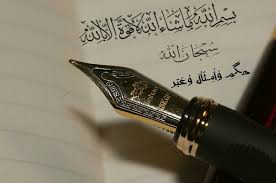 بسم الله ماشاء الله لا قوة إلا بالله
سبحان الله
حكم وأمثال وعبر